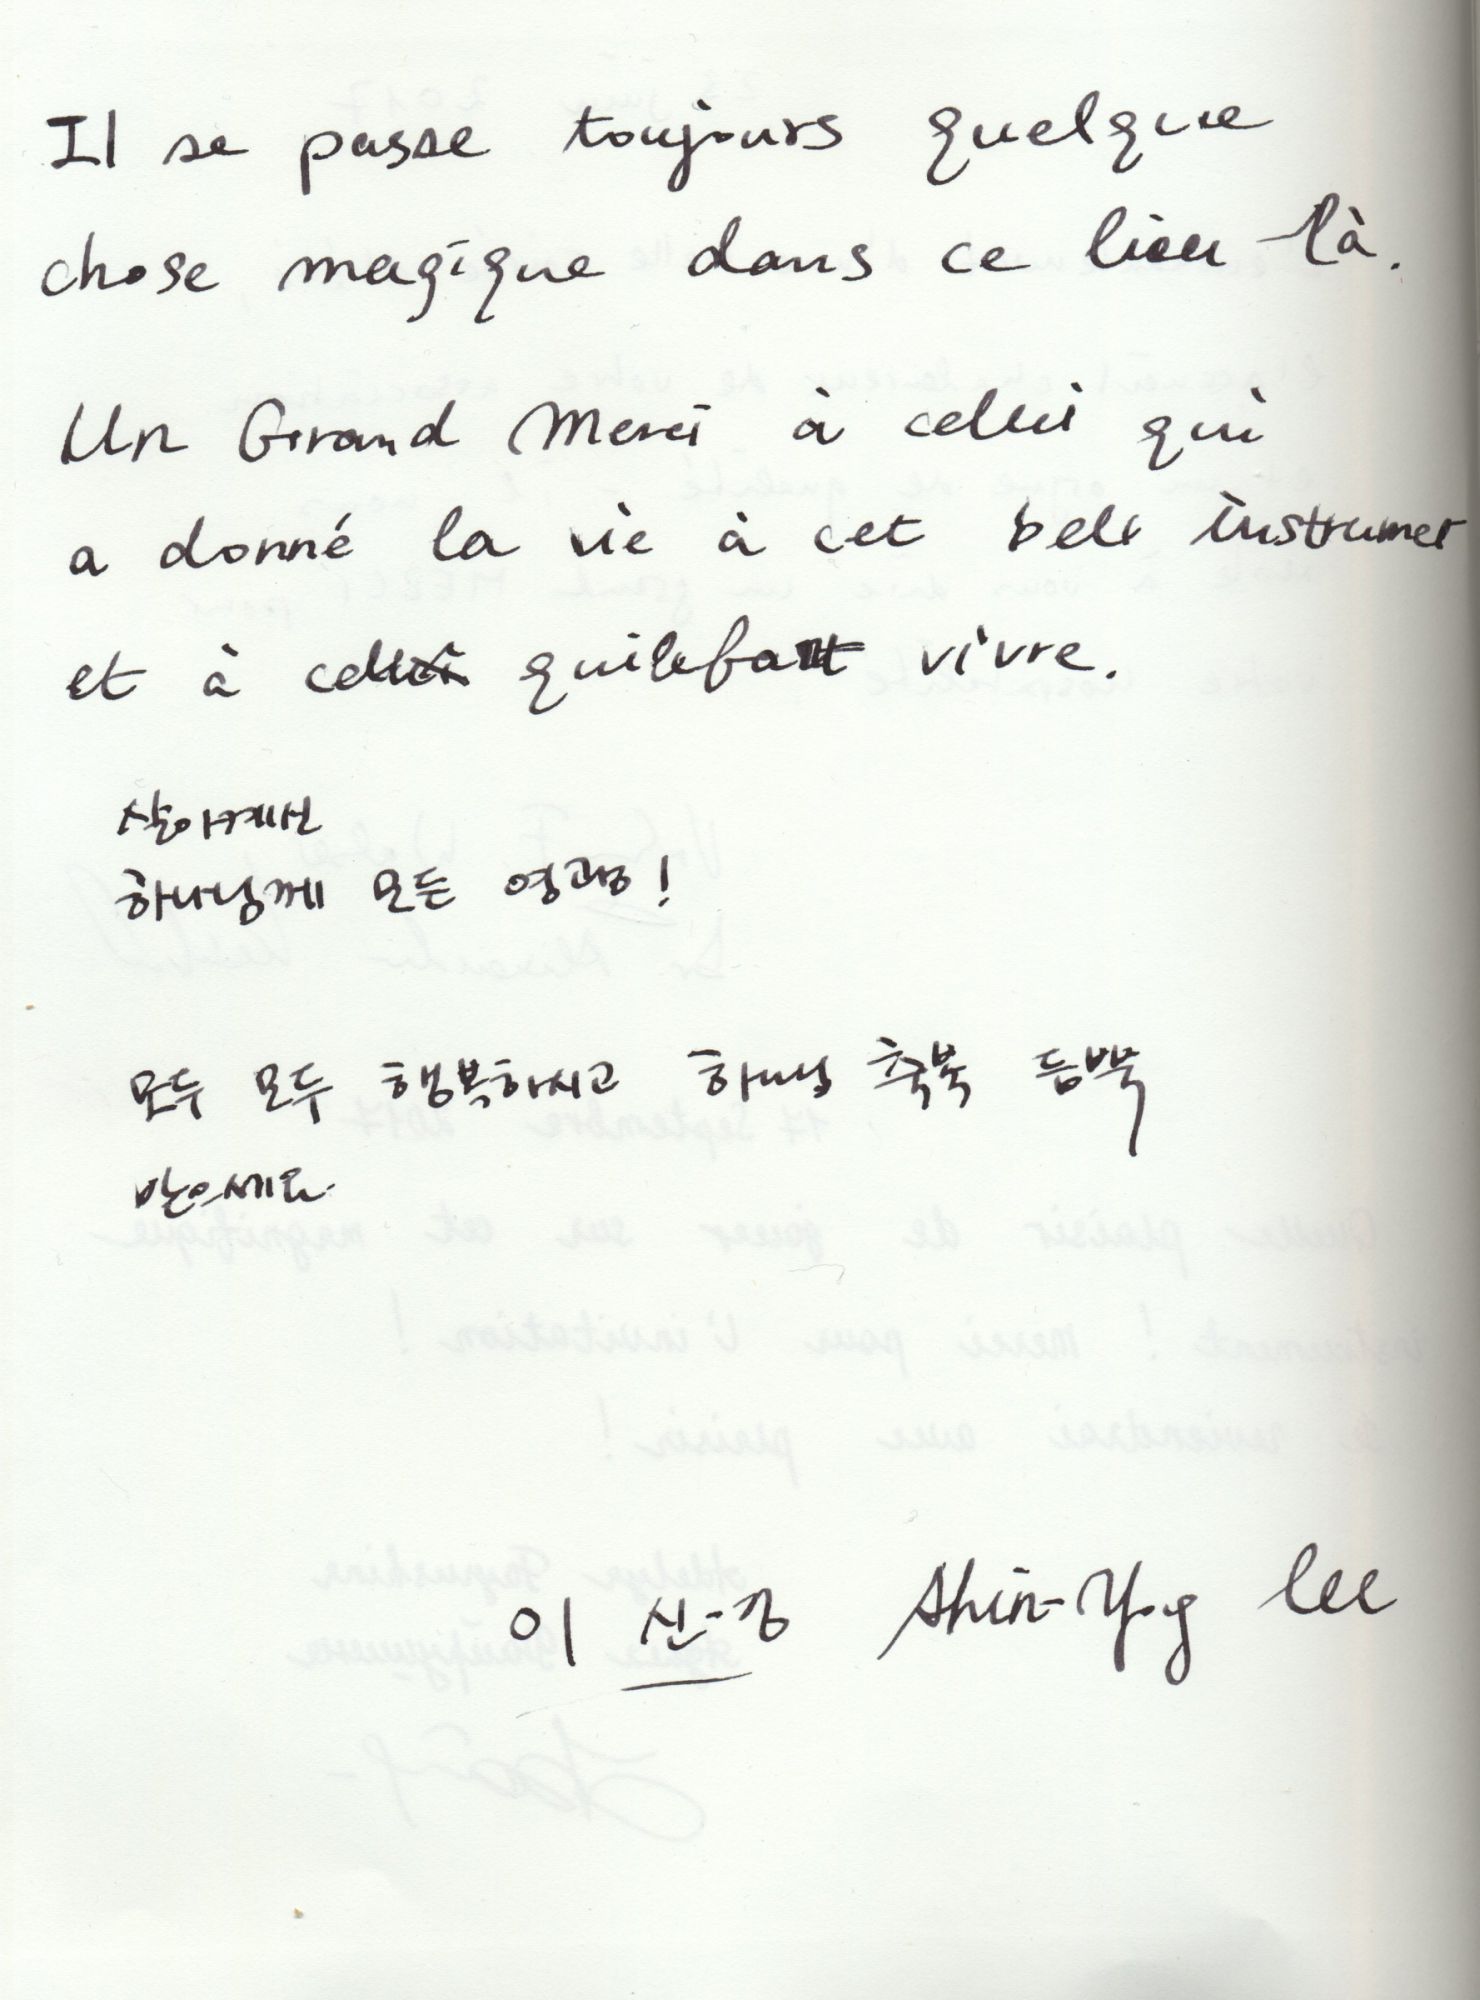 Il se passe toujours quelque
chose magique dans ce lieu-là.
Un Grand Merci à celui qui
a donné la vie à cet bele instrumet
et à celui qui le fait vivre.
살아계신
하나님께 모든 영광!
모두 모두 행복하시고 하나님 축복 듬뿍
받으세요
이 신-경 Shin-Yg Lee